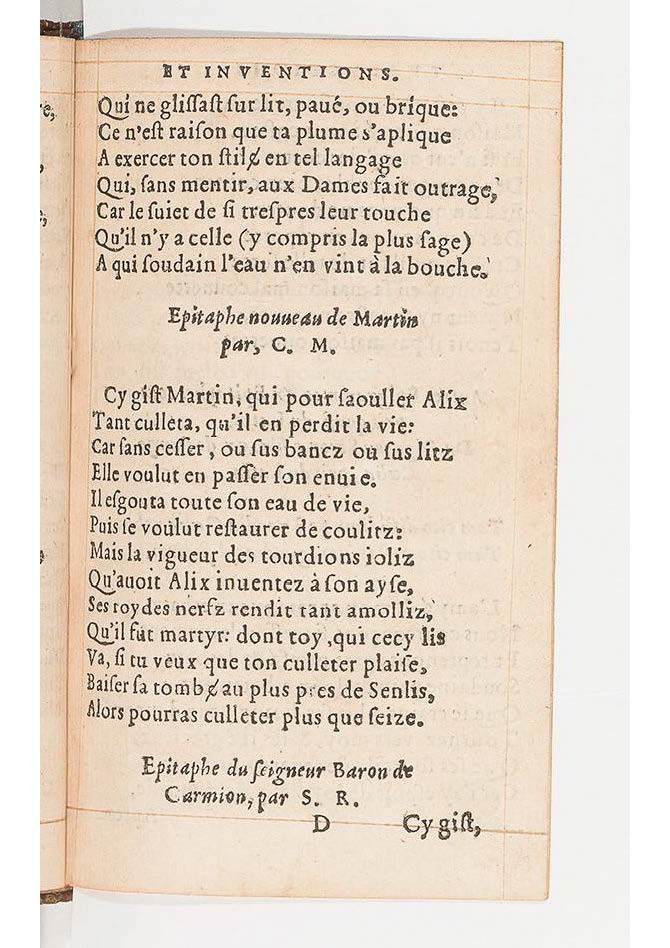 ET INVENTIONS.
Qui ne gliſſaſt ſur lit, paué, ou brique:
Ce n'eſt raiſon que ta plume s'aplique
A exercer ton ſtilɇ en tel langage
Qui, ſans mentir, aux Dames fait outrage,
Car le ſuiet de ſi treſpres leur touche
Qu'il n'y a celle (y compris la plus ſage)
A qui ſoudain l'eau n'en vint à la bouche.
Epitaphe nouueau de Martin
par, C. M.
Cy giſt Martin, qui pour ſaouller Alix
Tant culleta, qu'il en perdit la vie:
Car ſans ceſſer, ou ſus bancz ou ſus litz
Elle voulut en paſſer ſon enuie.
Il eſgouta toute ſon eau de vie,
Puis ſe voulut reſtaurer de coulitz:
Mais la vigueur des tourdions ioliz
Qu'auoit Alix inuentez à ſon ayſe,
Ses roydes nerfz rendit tant amolliz,
Qu'il fut martyr: dont toy, qui cecy lis
Va, ſi tu veux que ton culleter plaiſe,
Baiſer ſa tombɇ au plus pres de Senlis,
Alors pourras culleter plus que ſeize.
Epitaphe du ſeigneur Baron de
Carmion, par S. R.
D Cy giſt,